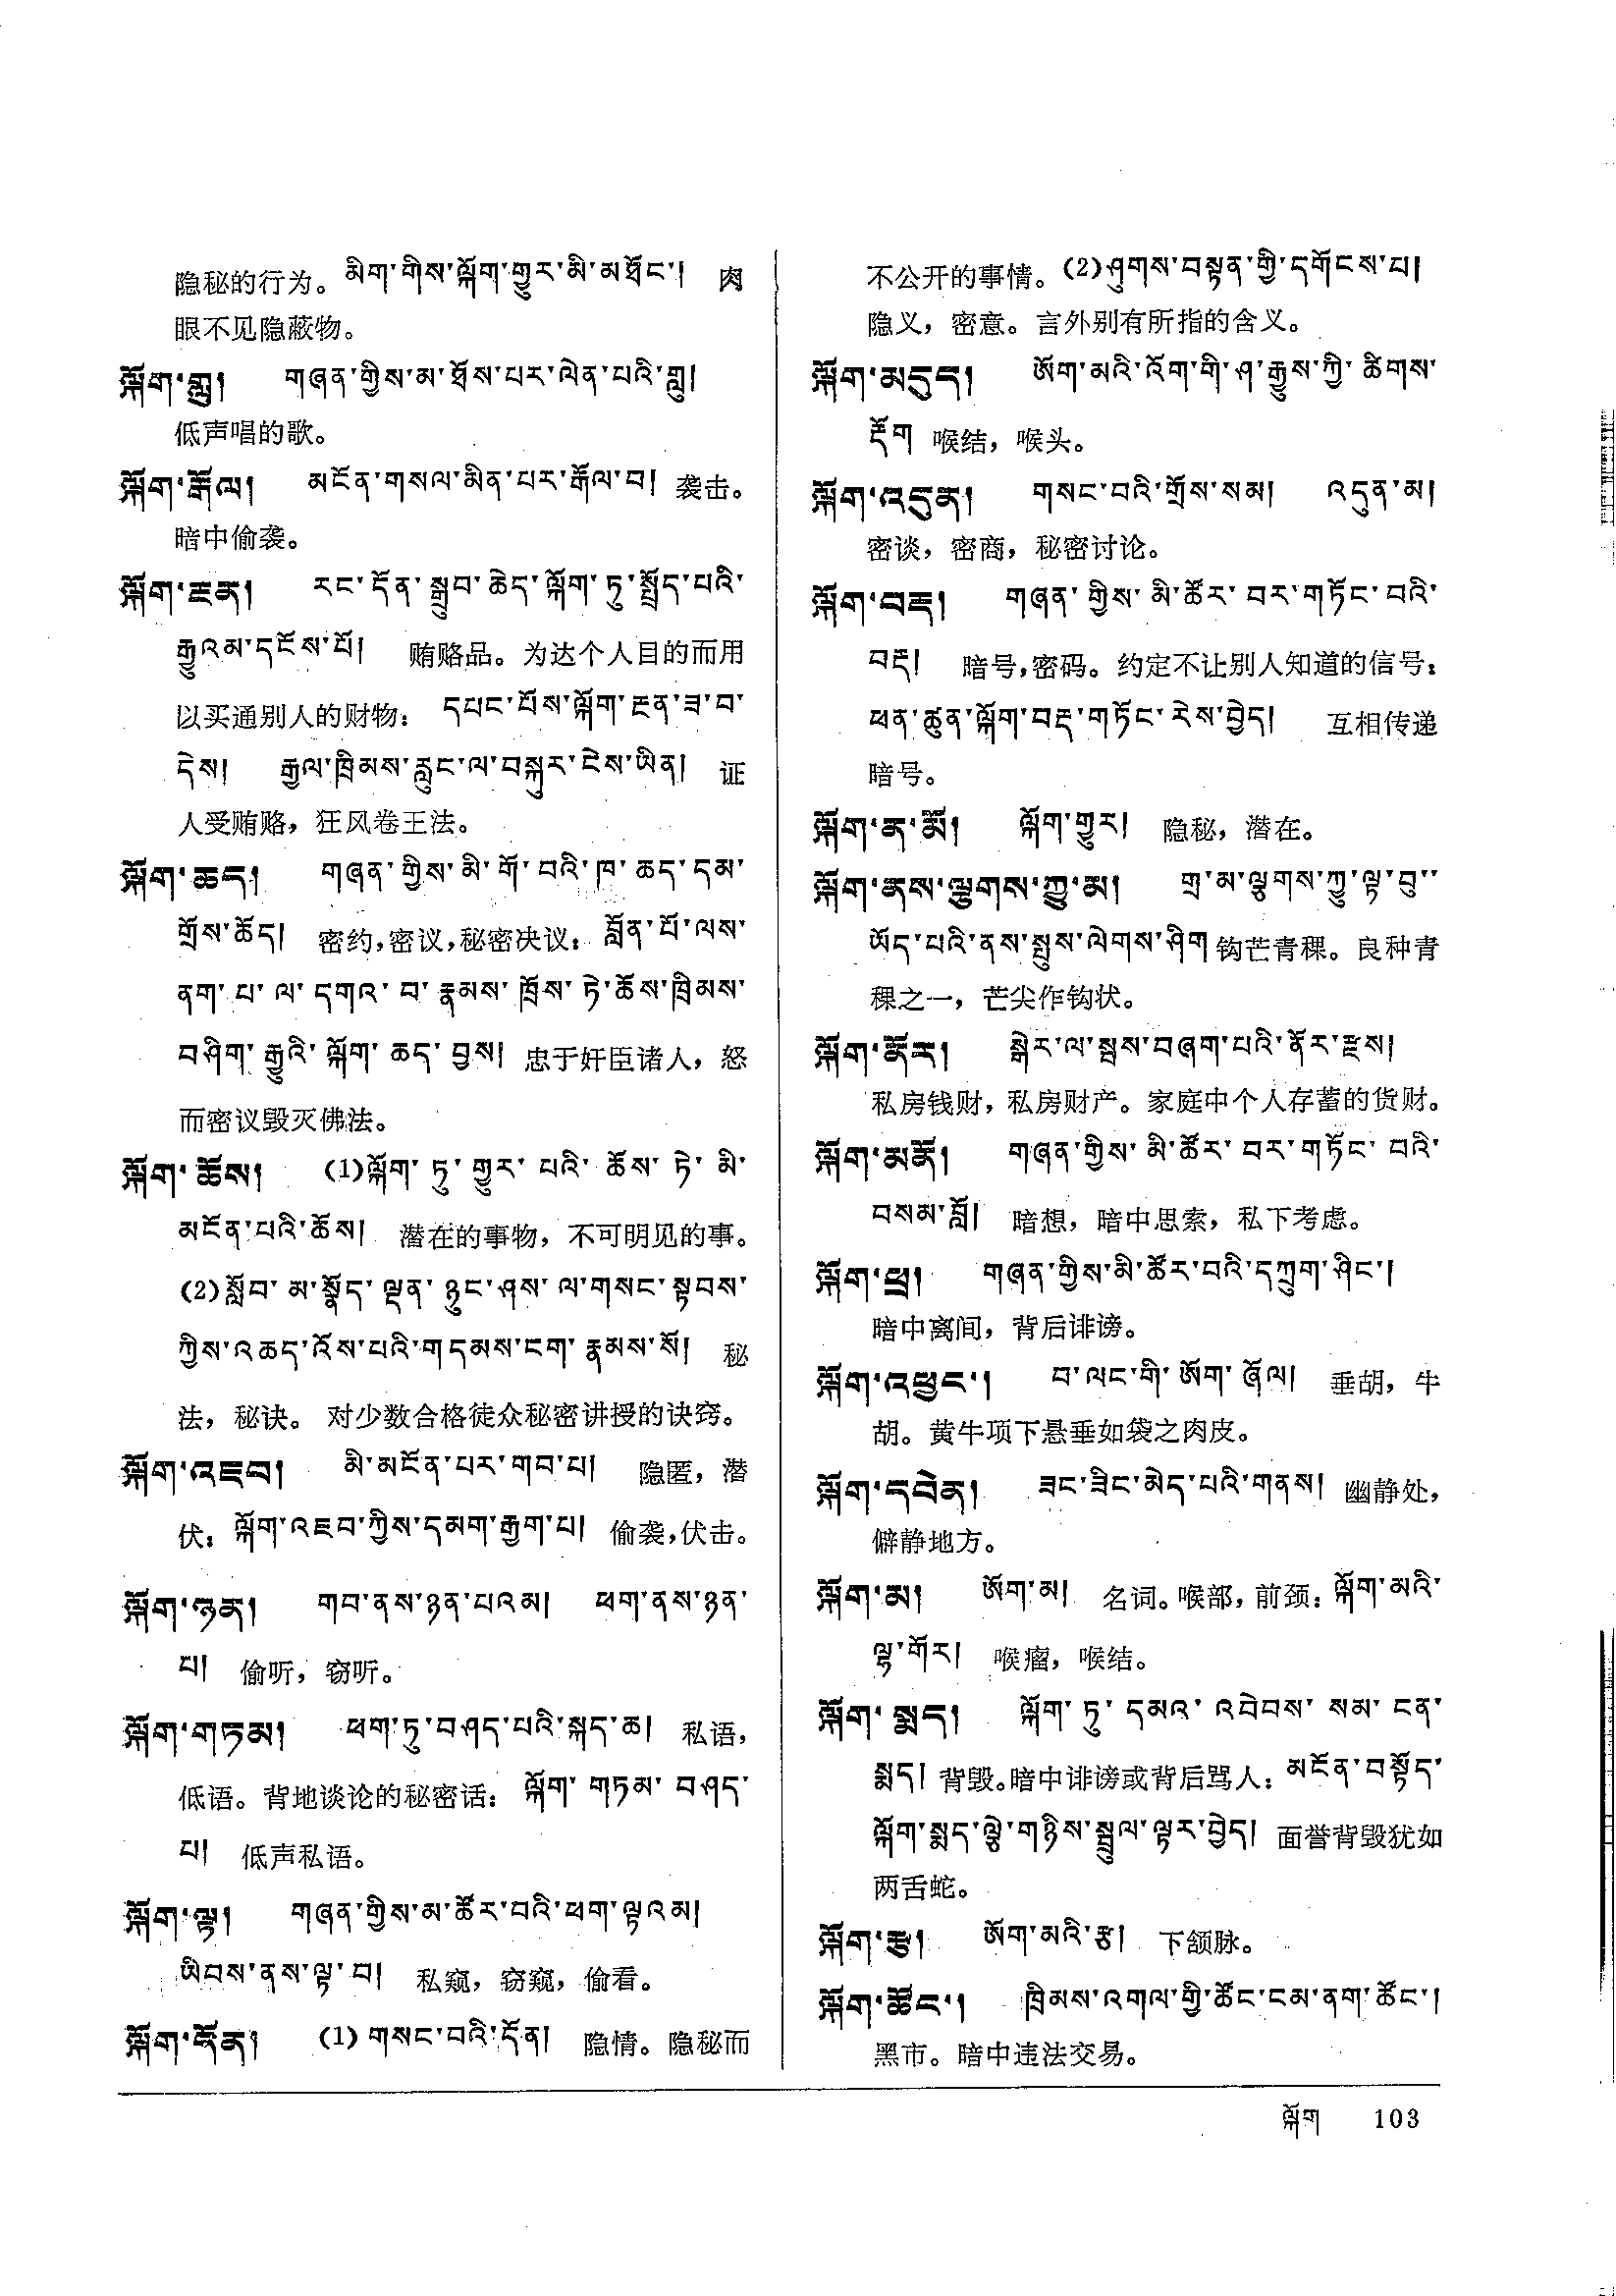 隐秘的行为。མིག་གིས་ལྐོག་གྱུར་མི་མཐོང་། 肉
眼不见隐蔽物。
ལྐོག་གླུ། གཞན་གྱིས་མ་ཐོས་པར་ལེན་པའི་གླུ།
低声唱的歌。
ལྐོག་རྒོལ། མངོན་གསལ་མིན་པར་རྒོལ་བ། 袭击。
暗中偷袭。
ལྐོག་རྔན། རང་དོན་སྒྲུབ་ཆེད་ལྐོག་ཏུ་སྤྲོད་པའི་
རྒྱུའམ་དངོས་པོ། 贿赂品。为达个人目的而用
以买通别人的财物：དཔང་པོས་ལྐོག་རྔན་ཟ་བ་
དེས། རྒྱལ་ཁྲིམས་རླུང་ལ་བསྐུར་ངེས་ཡིན། 证
人受贿赂，狂风卷王法。
ལྐོག་ཆད། གཞན་གྱིས་མི་གོ་བའི་ཁ་ཆད་དམ་
གྲོས་ཆོད། 密约，密议，秘密决议：བློན་པོ་ལས་
ནག་པ་ལ་དགའ་བ་རྣམས་ཁྲོས་ཏེ་ཆོས་ཁྲིམས་
བཤིག་རྒྱུའི་ལྐོག་ཆད་བྱས། 忠于奸臣诸人，怒
而密议毁灭佛法。
ལྐོག་ཆོས། (1)ལྐོག་ཏུ་གྱུར་པའི་ཆོས་ཏེ་མི་
མངོན་པའི་ཆོས། 潜在的事物，不可明见的事。
(2)སློབ་མ་སྣོད་ལྡན་ཉུང་ཤས་ལ་གསང་སྟབས་
ཀྱིས་འཆད་འོས་པའི་གདམས་ངག་རྣམས་སོ། 秘
法，秘诀。对少数合格徒众秘密讲授的诀窍。
ལྐོག་འཇབ། མི་མངོན་པར་གབ་པ། 隐匿，潜
伏：ལྐོག་འཇབ་ཀྱིས་དམག་རྒྱག་པ། 偷袭，伏击。
ལྐོག་ཉན། གབ་ནས་ཉན་པའམ། ཕག་ནས་ཉན་
པ། 偷听，窃听。
ལྐོག་གཏམ། ཕག་ཏུ་བཤད་པའི་སྐད་ཆ། 私语，
低语。背地谈论的秘密话：ལྐོག་གཏམ་བཤད་
པ། 低声私语。
ལྐོག་ལྟ། གཞན་གྱིས་མ་ཚོར་བའི་ཕག་ལྟའམ།
ཡིབས་ནས་ལྟ་བ། 私窥，窃窥，偷看。
ལྐོག་དོན། (1)གསང་བའི་དོན། 隐情。隐秘而
不公开的事情。(2)ཤུགས་བསྟན་གྱི་དགོངས་པ།
隐义，密意。言外别有所指的含义。
ལྐོག་མདུད། ཨོག་མའི་འོག་གི་ཤ་རྒྱུས་ཀྱི་ཚིགས་
རྡོག 喉结，喉头。
ལྐོག་འདུན། གསང་བའི་གྲོས་སམ། འདུན་མ།
密谈，密商，秘密讨论。
ལྐོག་བརྡ། གཞན་གྱིས་མི་ཚོར་བར་གཏོང་བའི་
བརྡ། 暗号，密码。约定不让别人知道的信号：
ཕན་ཚུན་ལྐོག་བརྡ་གཏོང་རེས་བྱེད། 互相传递
暗号。
ལྐོག་ན་མོ། ལྐོག་གྱུར། 隐秘，潜在。
ལྐོག་ནས་ལྕུགས་ཀྱུ་མ། གྲ་མ་ལྕགས་ཀྱུ་ལྟ་བུ་
ཡོད་པའི་ནས་སྤུས་ལེགས་ཤིག 钩芒青稞。良种青
稞之一，芒尖作钩状。
ལྐོག་ནོར། སྒེར་ལ་སྦས་བཞག་པའི་ནོར་རྫས།
私房钱财，私房财产。家庭中个人存蓄的货财。
ལྐོག་མནོ། གཞན་གྱིས་མི་ཚོར་བར་གཏོང་བའི་
བསམ་བློ། 暗想，暗中思索，私下考虑。
ལྐོག་ཕྲ། གཞན་གྱིས་མི་ཚོར་བའི་དཀྲུག་ཤིང་།
暗中离间，背后诽谤。
ལྐོག་འཕྱང་། བ་ལང་གི་ཨོག་ཞོལ། 垂胡，牛
胡。黄牛项下悬垂如袋之肉皮。
ལྐོག་དབེན། ཟང་ཟིང་མེད་པའི་གནས། 幽静处，
僻静地方。
ལྐོག་མ། ཨོག་མ། 名词。喉部，前颈：ལྐོག་མའི་
ལྷ་གོར། 喉瘤，喉结。
ལྐོག་སྨད། ལྐོག་ཏུ་དམའ་འབེབས་སམ་ངན་
སྨད། 背毁。暗中诽谤或背后骂人：མངོན་བསྟོད་
ལྐོག་སྨད་ལྕེ་གཉིས་སྦྲུལ་ལྟར་བྱེད། 面誉背毁犹如
两舌蛇。
ལྐོག་རྩ། ཨོག་མའི་རྩ། 下颔脉。
ལྐོག་ཚོང་། ཁྲིམས་འགལ་གྱི་ཚོང་ངམ་ནག་ཚོང་།
黑市。暗中违法交易。
ལྐོག 103